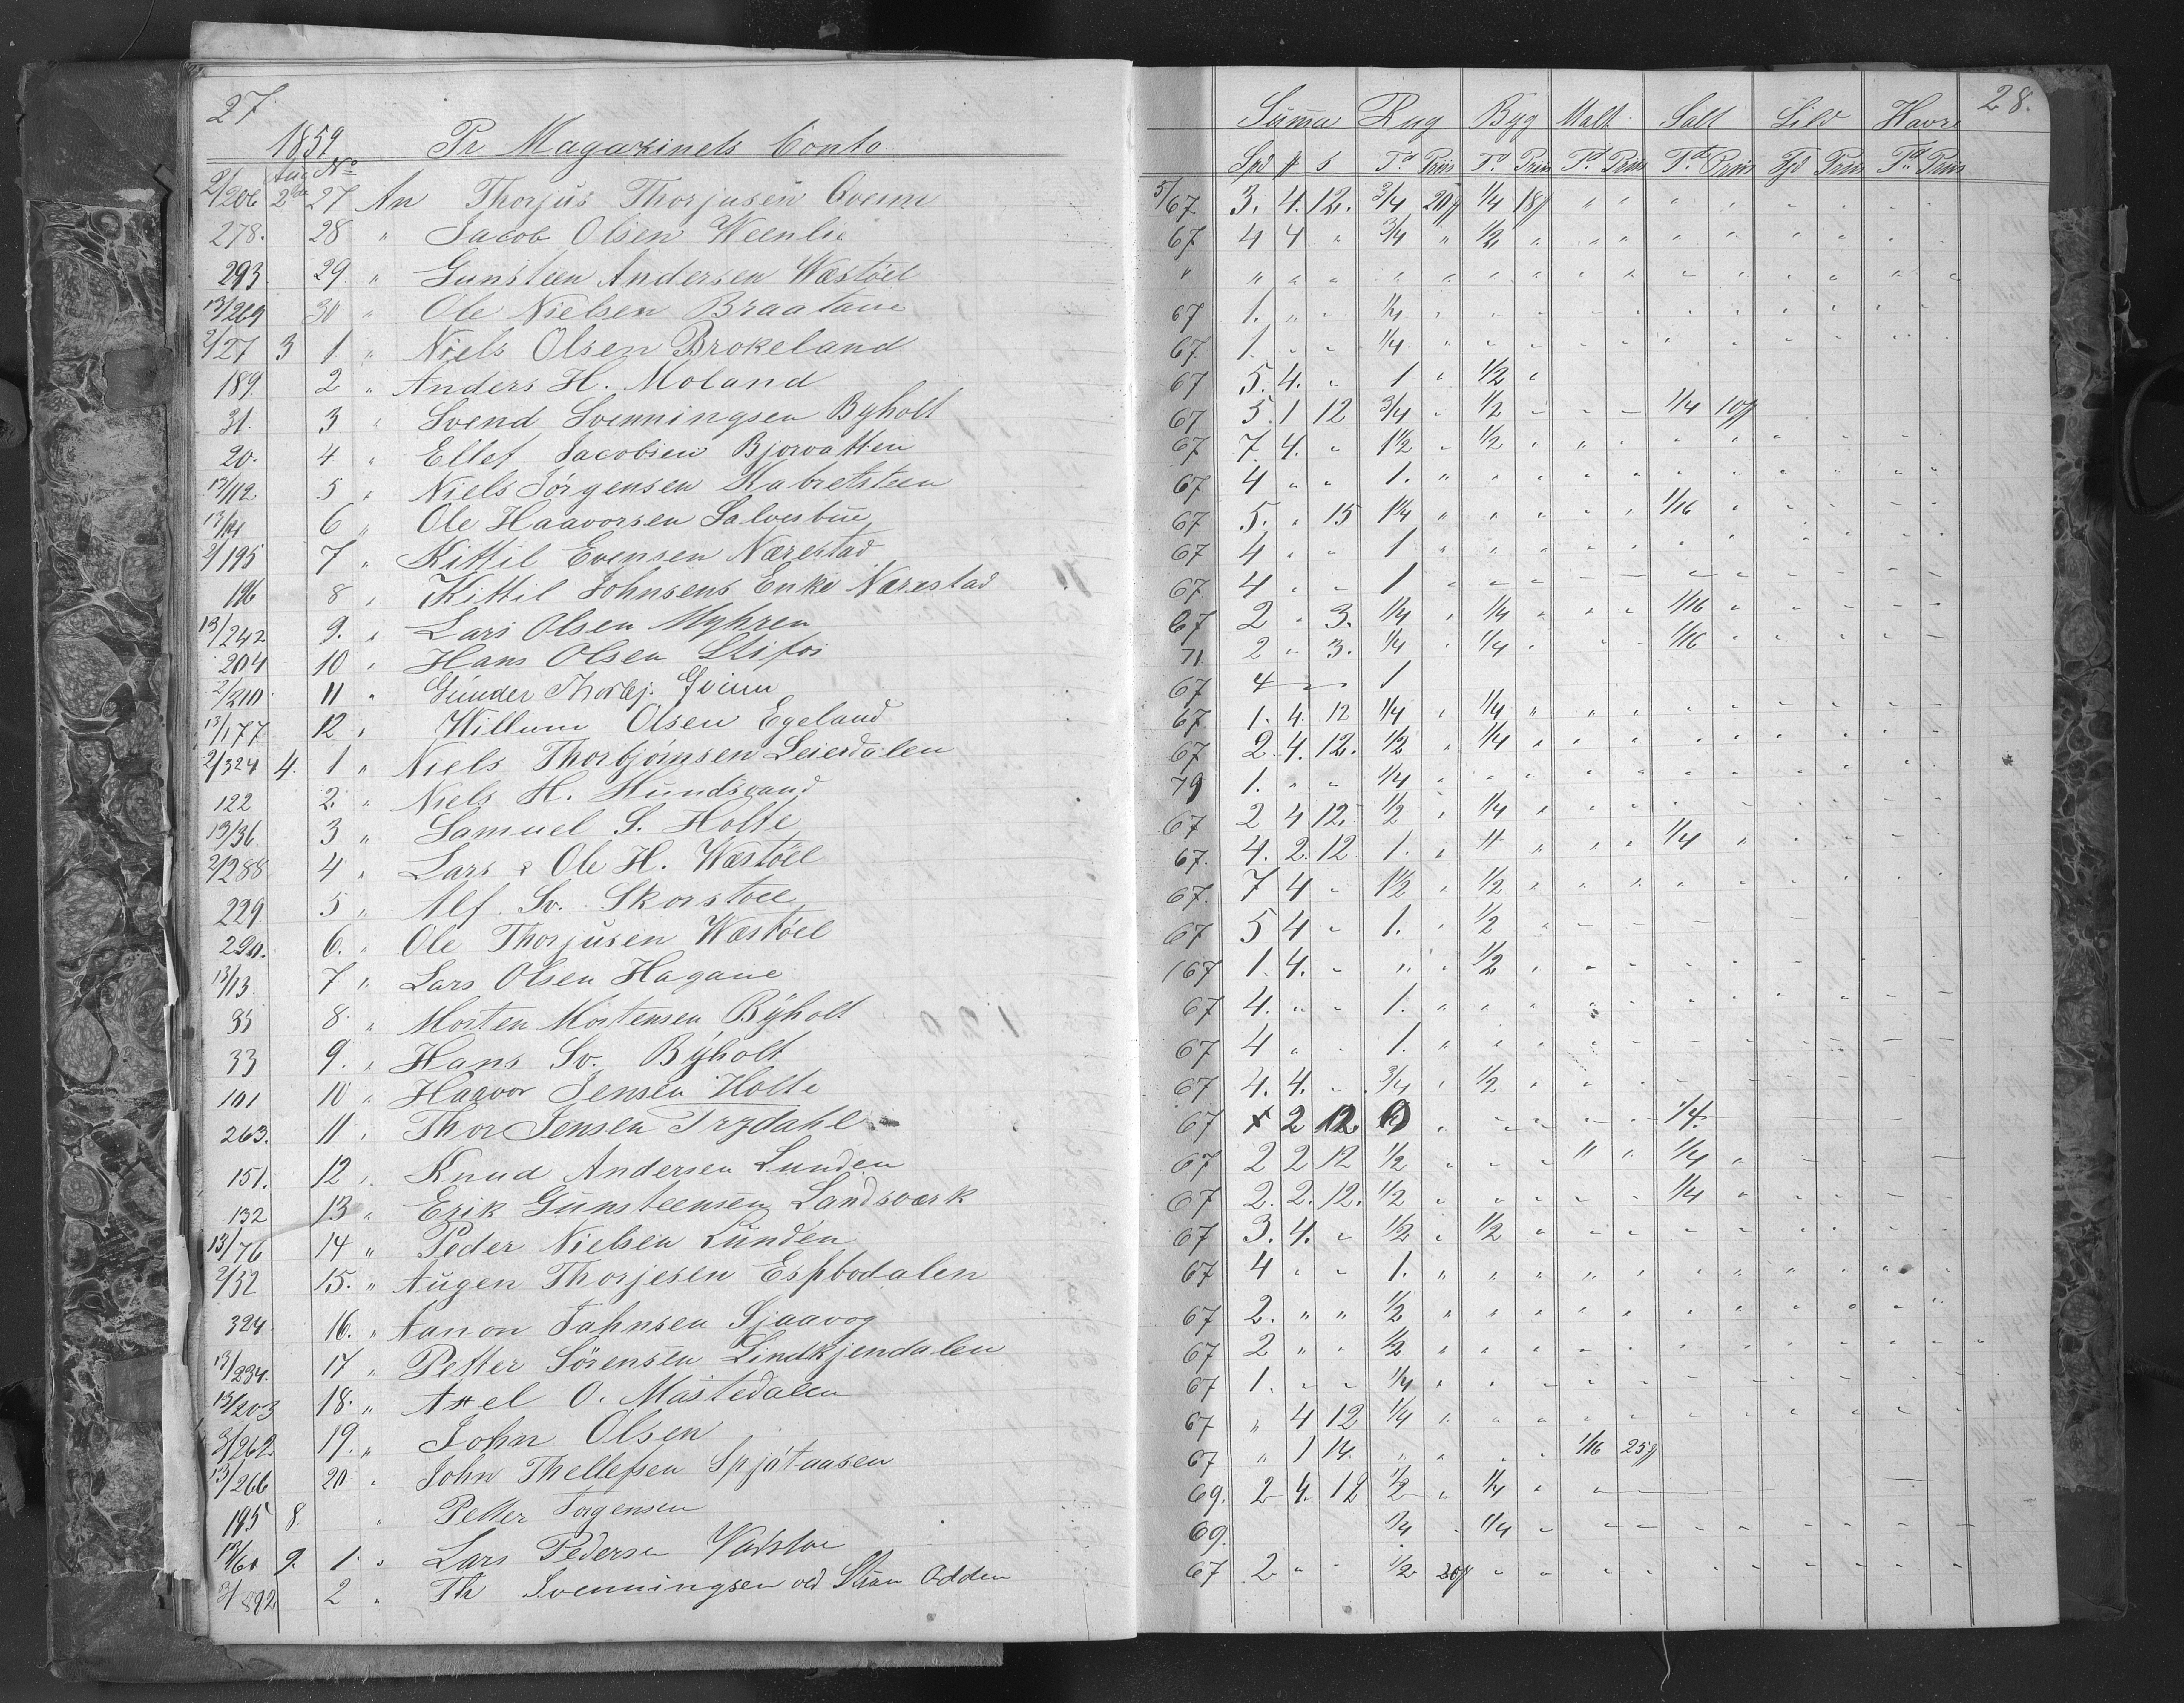 27
1859 Pr Magazinets Conto
Aug No
2/206 2de 27 An Thorjus Thorjusen Qveim
278. 28 " Jacob Olsen Weenlie
293. 29. " Gunsteen Andersen Wæstöel
13/269 30 " Ole Nielsen Braatane
2/27 3 1. " Niels Olsen Brokeland
189. 2 " Anders H. Moland
31. 3 " Svend Svenningsen Byholt
20. 4 " Ellef Jacobsen Bjorvatten
13/112. 5 " Niels Jörgensen
6 " Ole Haavorsen
2/195 7 " Kittil Evensen Nærestad
196 8 " Kittil Johnsens Enke Nærestad
13/242 9. " Lars Olsen Myhren
204 10 " Hans Olsen Stifos
2/210 11 " Günder Thorbj. Qveim
13/177 12 " Willum Olsen Egeland
2/324 4. 1 " Niels Thorbjörnsen Leierdalen
122 2. " Niels H. Hundsvand
13/36. 3 " Samuel S. Holte
2/288 4 " Lars & Ole H. Wæstöel
229 5 " Alf Sv. Skorstöel
290. 6. " Ole Thorjusen Wæstöel
13/13. 7 " Lars Olsen Hagane
35 8 " Morten Mortensen Byholt
33 9. " Hans Sv. Byholt
101 10 " Haavor Jensen Holte
263. 11 " Thor Jensen Trydahl
151. 12 " Knud Andersen Lunden
132 13 " Erik Gunsteensen Landsværk
13/76 14 " Peder Nielsen Lunden
2/32 15. " Augen Thorjesen Espbodalen
324 16. " Aanon Jahnsen Sjaavog
13/234. 17 " Petter Sörensen Lindkjendalen
13/203 18. " Axel O. Mastedalen
3/262 19. " John Olsen
13/266 20 " John Thellefsen Spjötaasen
195 8. " Petter Jorgensen
13/61 9. 1 " Lars Pedersen
3/892 2 " Th Svenningsen ved Odden
28.
Summa Rug Byg Malt Salt Sild Havre
Spd # s Td Priis Td Priis Td Priis Td Priis Tjd Priis Td Priis
5/67 3. 4. 12. 3/4 20# 1/4 18# " " " " " " " "
67 4 4 " 3/4 " 1/2 " " " " " " " " "
" " " " " " " " " " " " " " " "
67 1. " " 1/4 " " " " " " " " " " "
67. 1. " " 1/4 " " " " " " " " " " "
67 5. 4. " 1 " 1/2 "
67 5. 1 12 3/4 " 1/2 " " " 1/4 10#
67 7. 4. " 1 1/2 " 1/2 " " " " " " " " "
67 4 " " 1. " " " " " " " " " " "
67 5. " 15 1 1/4 " " " " " 1/16 " " " " "
67 4 " " 1 " " " " " " " " " " "
67 4 " " 1 " " " " " " " " " " "
67 2 " 3. 1/4 " 1/4 " " " 1/16 " " " " "
71 2 " 3. 1/4 " 1/4 " " " 1/16 " " " " "
67 4 — 1
67 1. 4. 12 1/4 " 1/4 " " " " " " " " "
67 2. 4. 12. 1/2 " 1/4 " " " " " " " " "
79 1. " " 1/4 " " " " " " " " " " "
67 2 4 12. 1/2 " 1/4 " " " " " " " " "
67. 4. 2. 12 1. " " " " " 1/4 " " " " "
67. 7 4 " 1 1/2 " 1/2 " " " " " " " " "
67 5 4 " 1. " 1/2 " " " " " " " " "
167 1. 4. " " " 1/2 " " " " " " " " "
67 4. " " 1. " " " " " " " " " " "
67 4 " " 1. " " " " " " " " " " "
67 4. 4. " 3/4 " 1/2 " " " " " " " " "
67 x 2 12 " " " " " 1/4.
67 2 2 12 1/2 " " " " " 1/4 " " " " "
67 2. 2. 12. 1/2 " " " " " 1/4 " " " " "
67 3. 4. " 1/2 " 1/2 " " " " " " " " "
67 4 " " 1. " " " " " " " " " " "
67 2. " " 1/2 " " " " " " " " " " "
67 2 " " 1/2 " " " " " " " " " " "
67 1. " " 1/4 " " " " " " " " " " "
67 " 4 12 1/4 " " " " " " " " " " "
67 " 1 14. " " " " 1/16 25#
69. 2 4. 12 1/2 " 1/4 " " "
69. 1/4 " 1/4 " " " " " " " " "
67 2 " " 1/2 20# " " " " " " " " " "